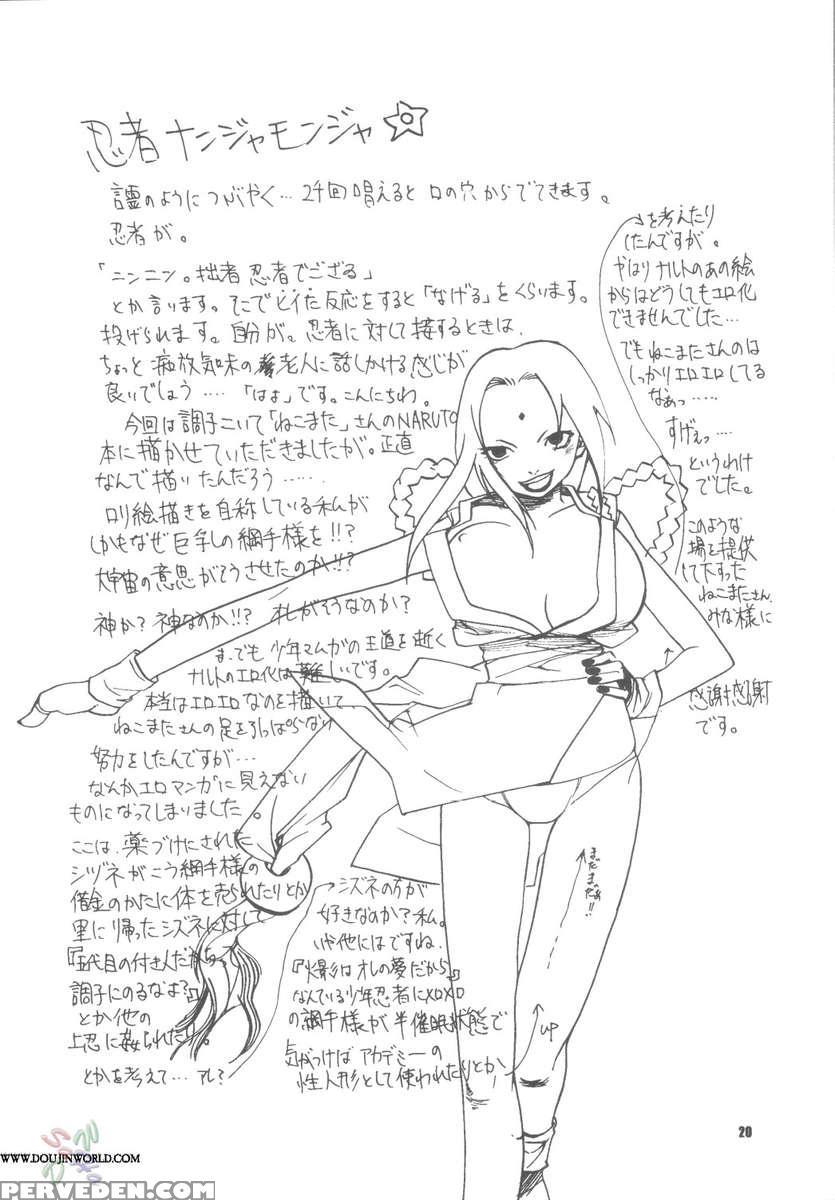 忍者ナンジャモンジャ☆
言霊のようにつぶやく…2千回唱えると口の穴からでてきます。
忍者が。
「ニンニン。拙者忍者でござる」
とか言います。そこでどイた反応をすると「なげる」をくらいます。
投げられます。自分が。忍者に対して接するときは、
ちょっと痴放気味の老人に話しかける感じが
良いでしょう……「はよ」です。こんにちわ。
今回は調子こいて「ねこまた」さんのNARUTO
本に描かせていただきましたが。正直
なんで描いたんだろう……
ロリ絵描きを自称している私が
しかもなぜ巨乳の綱手様を!!?
大宇宙の意思がそうさせたのか!!?
神か?神なのか!!?それがそうなのか?
ま、でも少年マムガの王道を逝く
ナルトのエロ化は難しいです。
本当はエロエロなのを描いて
ねこまたさんの足を引っぱらない
努力をしたんですが…
なんかエロマンガに見えない
ものになってしまいました。
ここは、薬づけにされた
シヅネがこう綱手様の
借金のかたに体を売られたりとか
里に帰ったシズネに対して
『五代目の付き人だからって
調子にのるなよ?』
とか他の
上忍に姦られたり。
とかを考えて…アレ?
シズネの方が
好きなのか?私。
いや他にはですね、
『火影はオレの夢だから』
なんている少年忍者にXOXO
の綱手様が半催眠状態で
気がつけばアカデミーの
性人形として使われたりとか
を考えたり
したんですが。
やはりナルトのあの絵
からはどうしてもエロ化
できませんでした…
でもねこまたさんのは
しっかりエロエロしてる
なぁっ……
すげぇっ…
というわけ
でした。
このような
場を提供
して下すった
ねこまたさん、
みな様に
感謝感謝
です。
まだまだぁ!!
UP
20
WWW.DOUJINWORLD.COM
PERVEDEN.COM